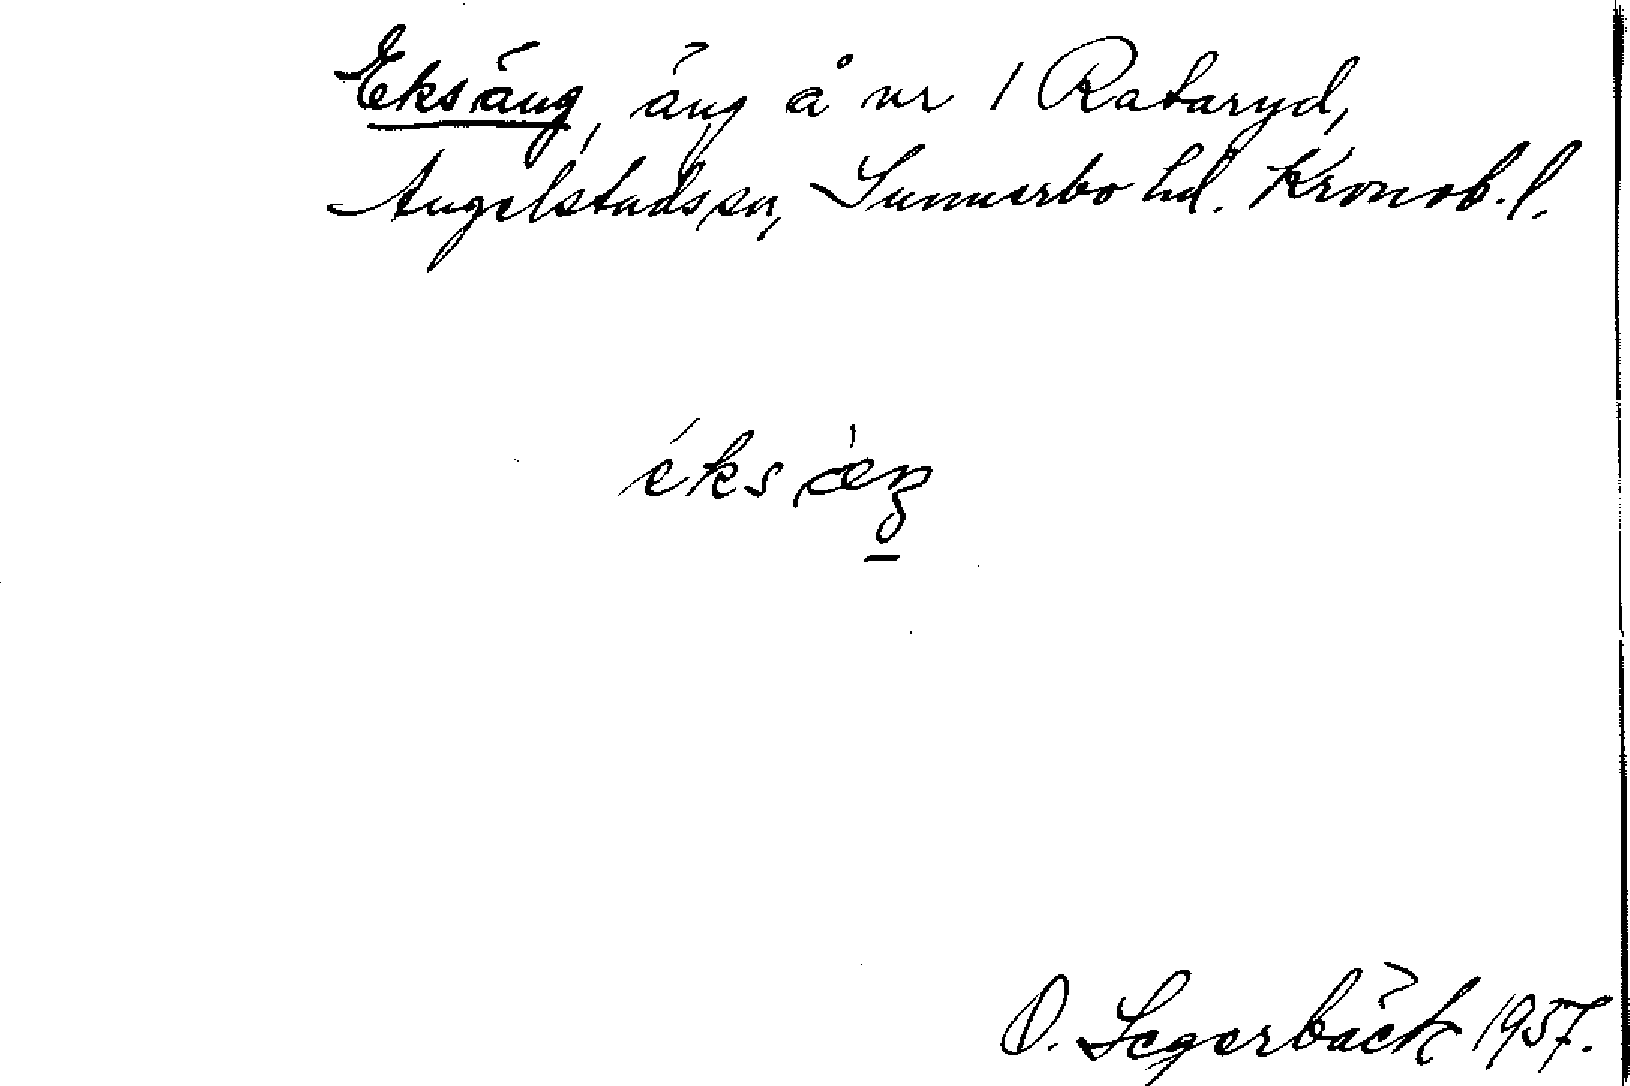 Eksäng, äng å nr 1 Rataryd,
Angelstads sn, Sunnerbo hd. Kronob. l.
éksæ̀ŋ
O. Segerbäck 1957.